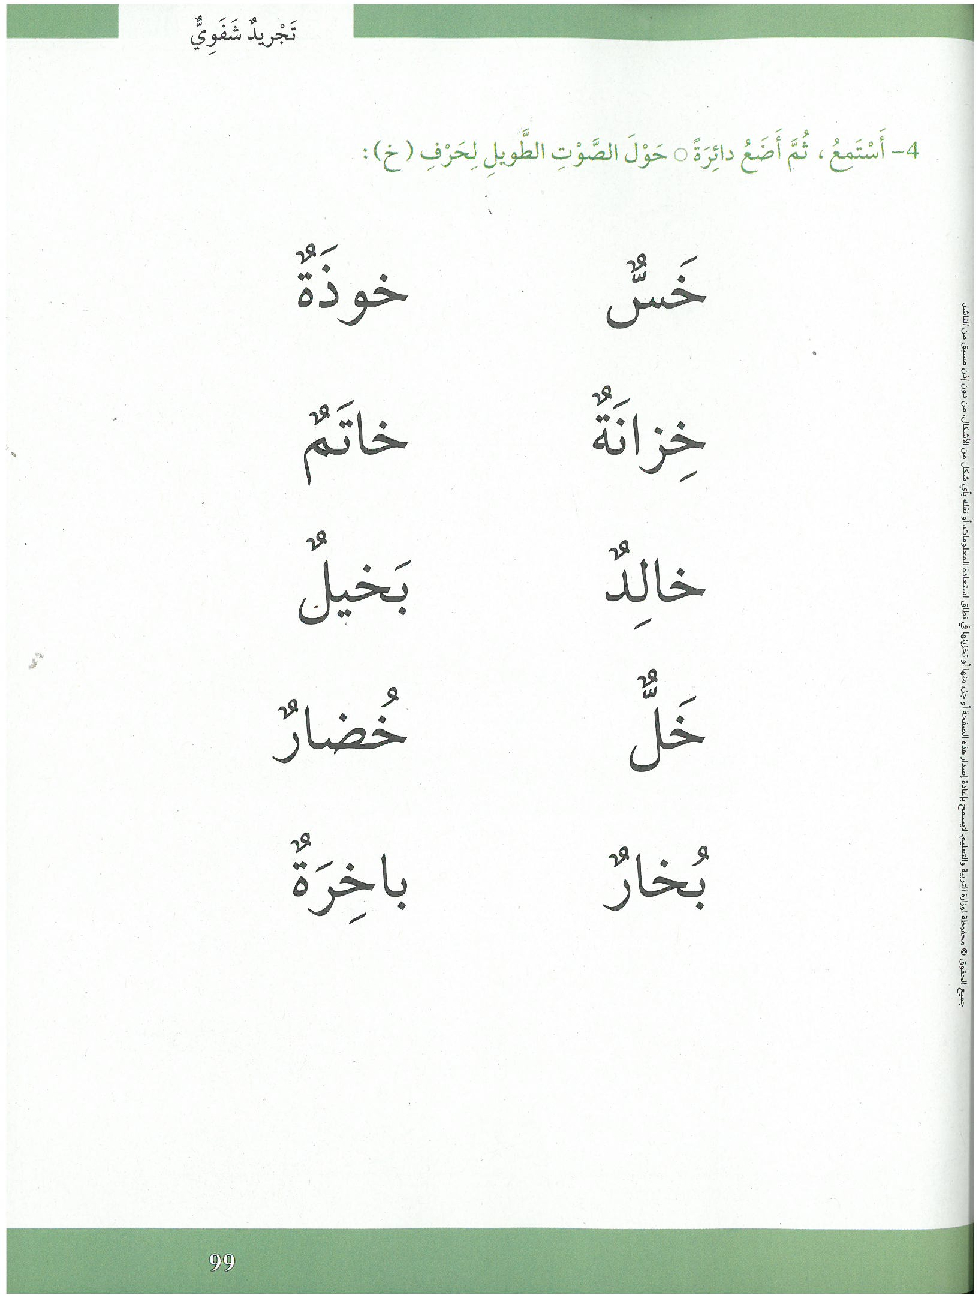 تَجْريدٌ شَفَوِيٌّ
4- أَسْتَمِعُ، ثُمَّ أَضَعُ دائِرَةً ○ حَوْلَ الصَّوْتِ الطَّويلِ لِحَرْفِ (خ):
خَسٌّ خوذَةٌ
خِزانَةٌ خاتَمٌ
خالِدٌ بَخيلٌ
خَلٌّ خُضارٌ
بُخارٌ باخِرَةٌ
جميع الحقوق © محفوظة لوزارة التربية والتعليم. لايسمح بإعادة إصدار هذه الصفحة أو جزء منها أو تخزينها في نطاق استعادة المعلومات، أو نقله بأي شكل من الأشكال، من دون إذن مسبق من الناشر.
99